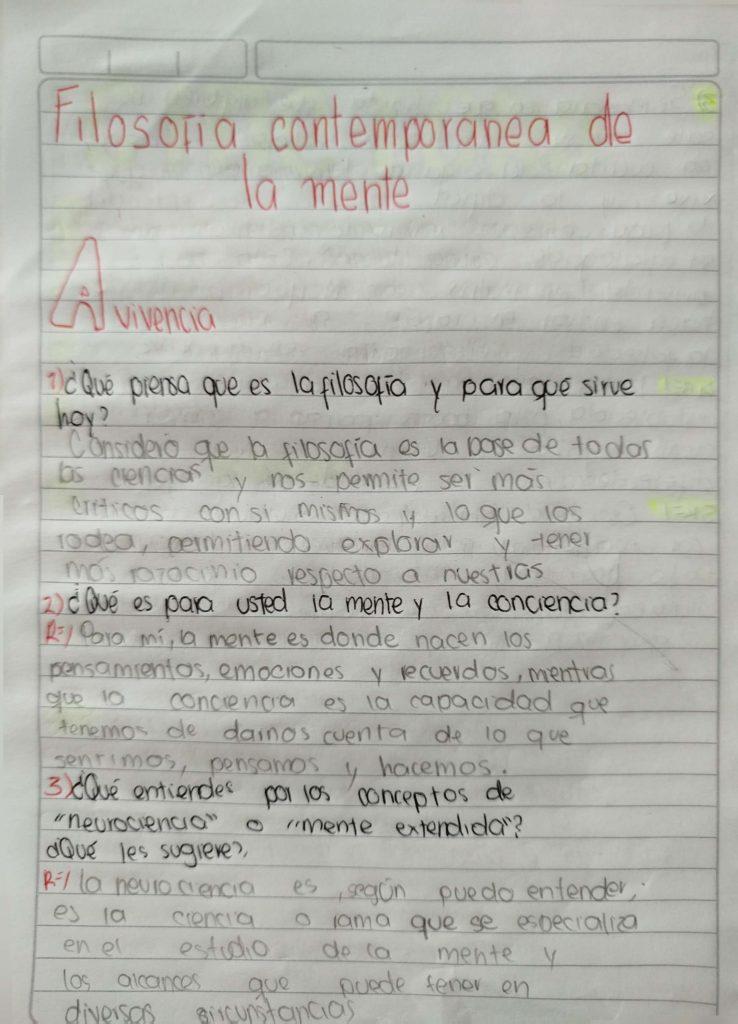 Filosofia contemporanea de
la mente
A
vivencia
1) ¿Qué piensa que es la filosofía y para qué sirve
hoy?
Considero que la filosofía es la base de todas
las ciencias y nos permite ser más
criticos con si mismos y lo que los
rodea, permitiendo explorar y tener
más rozocinio respecto a nuestras
2) ¿Qué es para usted la mente y la conciencia?
R=/ Para mí, la mente es donde nacen los
pensamientos, emociones y recuerdos, mentras
que la conciencia es la capacidad que
tenemos de darnos cuenta de lo que
sentimos, pensamos y hacemos.
3) ¿Qué entiendes por los conceptos de
"neurociencia" o "mente extendida"?
¿Qué les sugiere?,
R=/ la neurociencia es, según puedo entender,
es la ciencia o rama que se especializa
en el estudio de la mente y
los alcances que puede tener en
diversas circunstancias